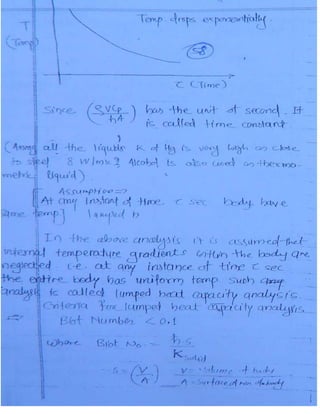 T
(Temp)
Temp drops exponentially
58
τ (Time)
Since (ρVCp / hA) has the unit of second. It
is called time constant
(Among all the liquids K of Hg is very high as close
to steel 8 W/mk? Alcohol is also used as thermo-
metric liquid)
Assumption =>
At any instant of time τ sec body have
same temp] lumped h
In the above analysis it is assumed that
internal temperature gradients within the body are
neglected i.e. at any instance of time τ sec
the entire body has uniform temp such
analysis is called lumped heat capacity analysis.
Criteria for lumped heat capacity analysis
=> Biot Number < 0.1
where Biot No. = h.s / K solid
s = (V / A) V = Volume of body
A = Surface of body